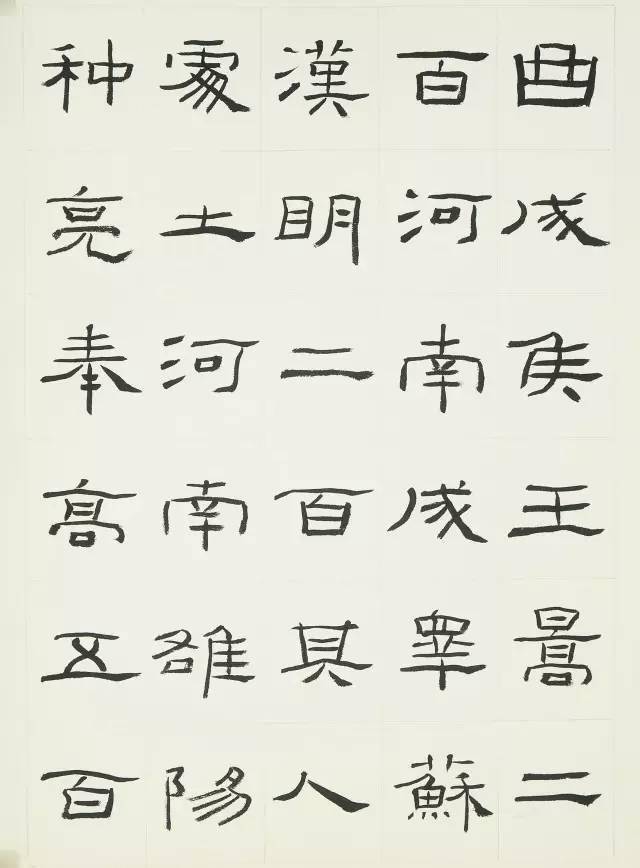 曲成侯王暠二
百河南成睪蘇
漢明二百其人
處土河南雒陽
种亮奉高五百